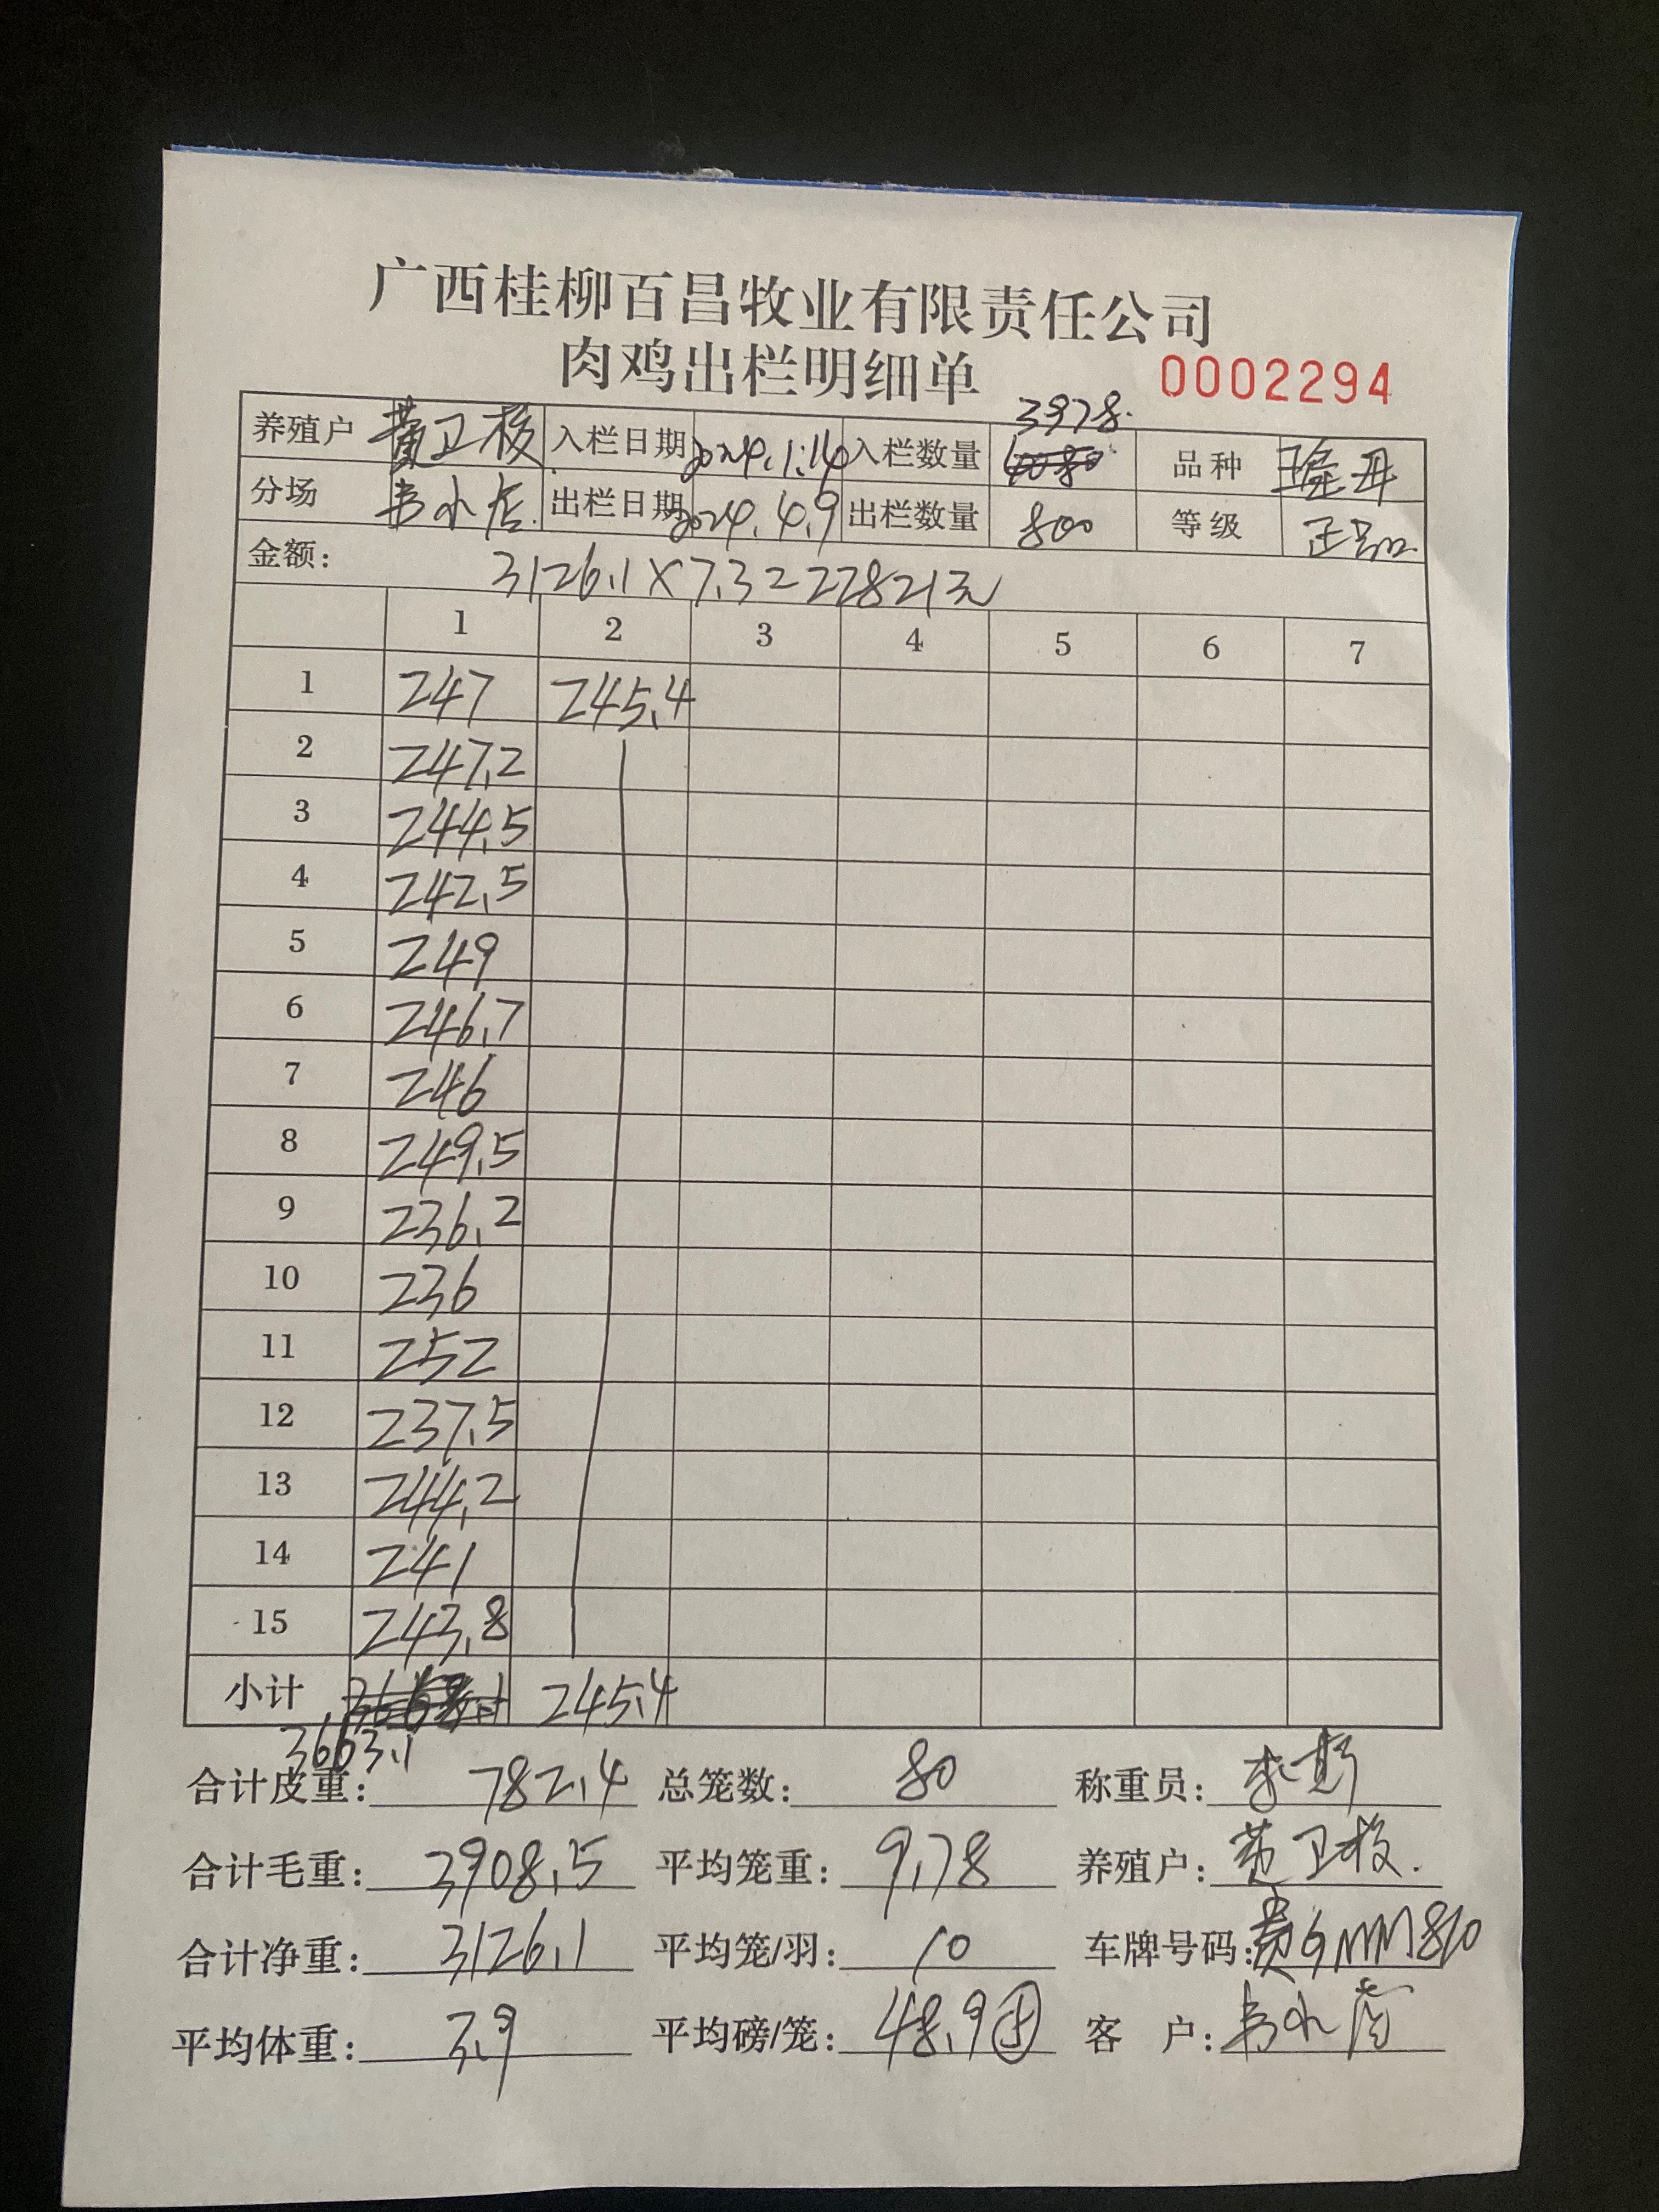 广西桂柳百昌牧业有限责任公司
肉鸡出栏明细单 0002294
养殖户 黄卫 入栏日期 2024.1.14 入栏数量 3978. 品种
分场 出栏日期 2024.4.9 出栏数量 800 等级 正品
金额: 3126.1×7.3=22821元
1 2 3 4 5 6 7
1 247 245.4
2 247.2
3 244.5
4 242.5
5 249
6 246.7
7 246
8 249.5
9 236.2
10 236
11 252
12 237.5
13 244.2
14 241
15 243.8
小计 3663.1 245.4
合计皮重: 782.4 总笼数: 80 称重员:
合计毛重: 3908.5 平均笼重: 9.78 养殖户: 黄卫
合计净重: 3126.1 平均笼/羽: 10 车牌号码:
平均体重: 3.9 平均磅/笼: 48.9 客 户: